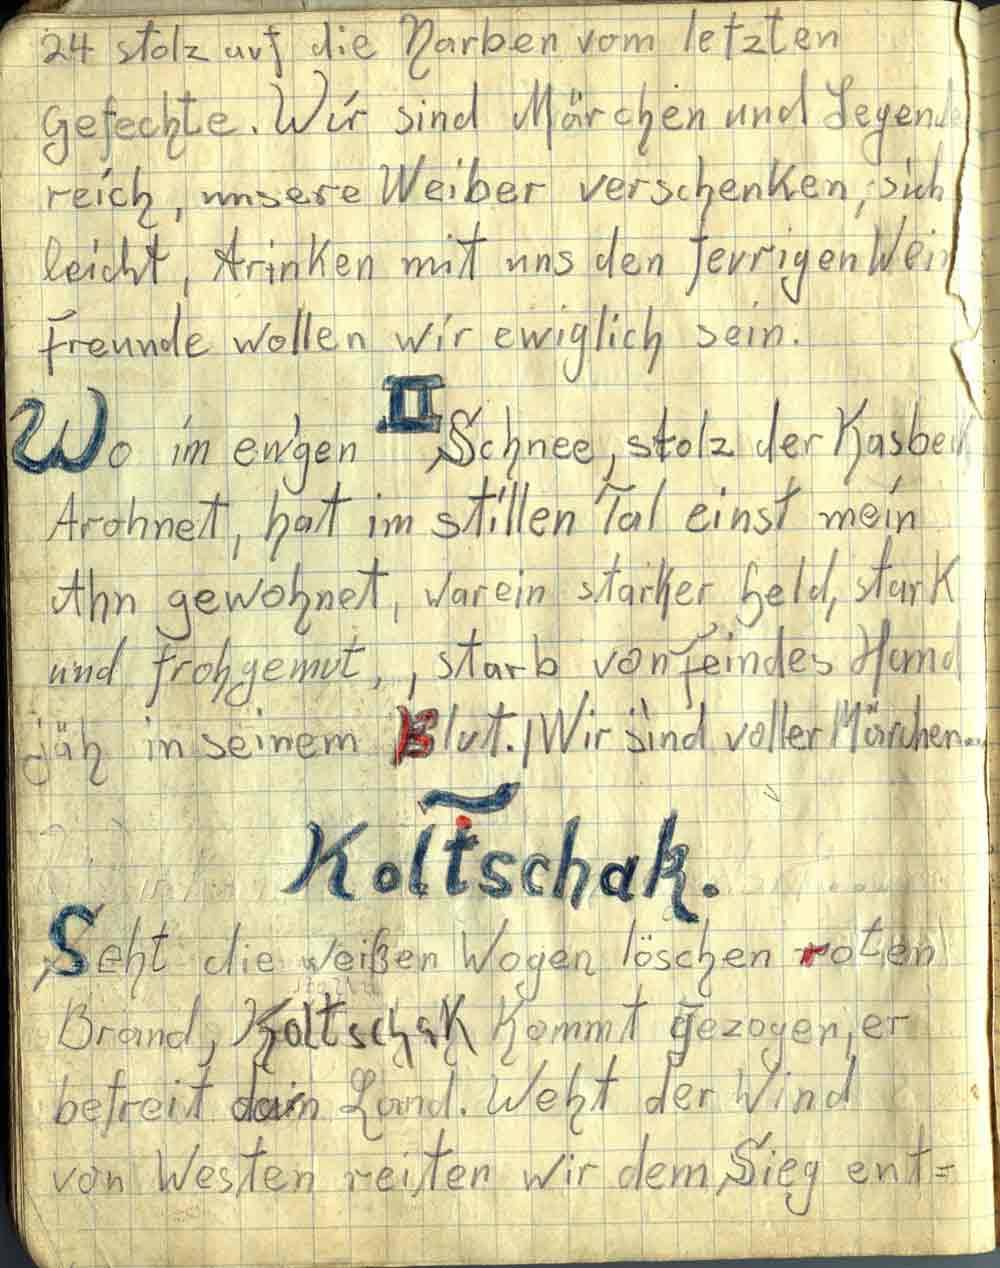 24 stolz auf die Narben vom letzten
Gefechte. Wir sind Märchen und Legende
reich, unsere Weiber verschenken, sich
leicht, trinken mit uns den feurigen Wein
Freunde wollen wir ewiglich sein.
II
Wo im ew'gen Schnee, stolz der Kasbek
Arohnet, hat im stillen Tal einst mein
Ahn gewohnet, war ein starker Held, stark
und frohgemut, , starb von Feindes Hand
jäh in seinem Blut. | Wir sind voller Märchen...
Koltschak.
Seht die weißen Wogen löschen roten
Brand, Koltschak kommt gezogen, er
befreit dain Land. Weht der Wind
von Westen reiten wir dem Sieg ent=